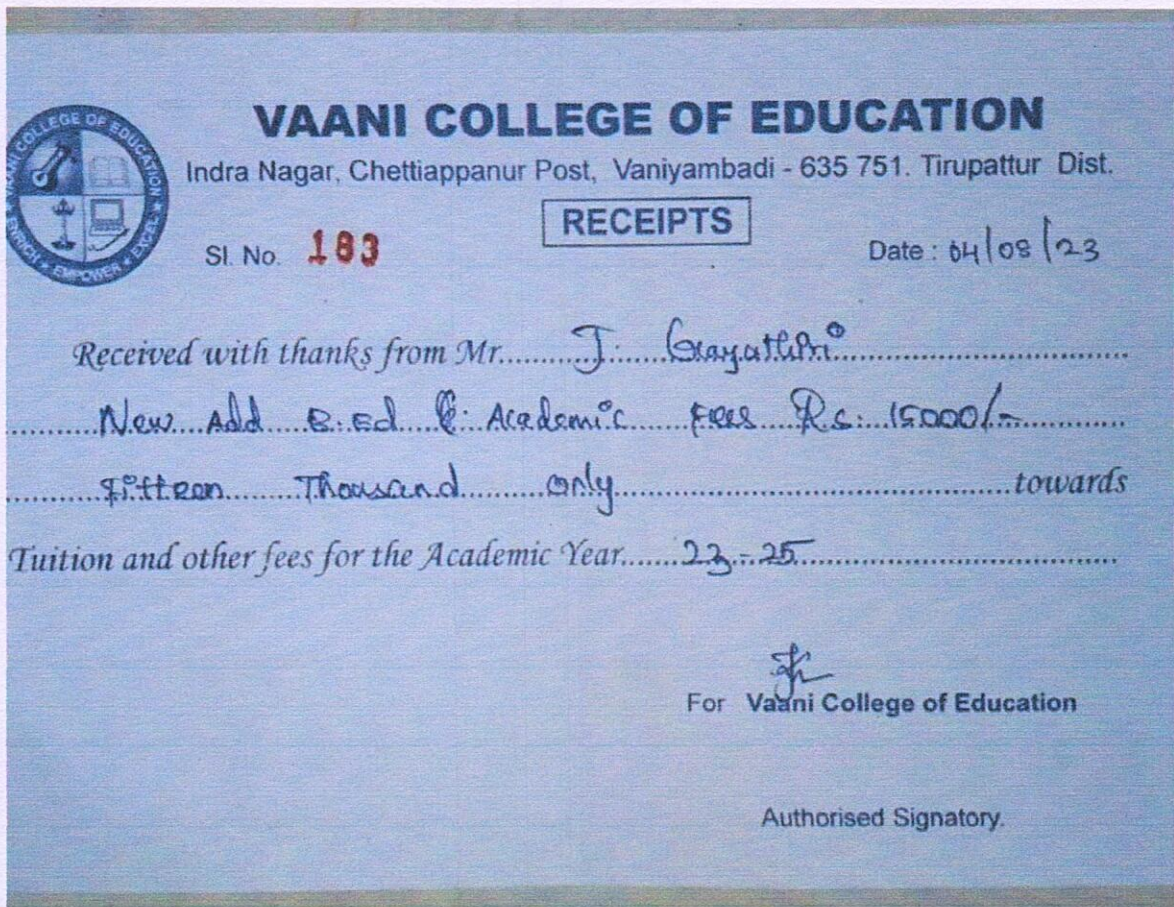 VAANI COLLEGE OF EDUCATION
VAANI COLLEGE OF EDUCATION
ENRICH ★ EMPOWER ★ EXCELS
Indra Nagar, Chettiappanur Post, Vaniyambadi - 635 751. Tirupattur Dist.
RECEIPTS
Sl. No. 183
Date : 04/08/23
Received with thanks from Mr. J. Gayathri
New Add B.Ed Academic Fees Rs. 15000/-
Fifteen Thousand only towards
Tuition and other fees for the Academic Year 23-25
For Vaani College of Education
Authorised Signatory.